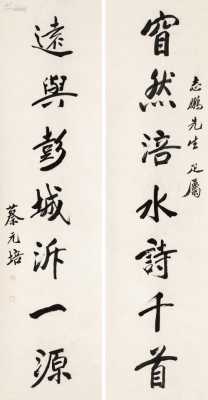 窅然涪水詩千首
志鵬先生正屬
遠與彭城泝一源
蔡元培